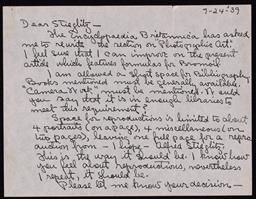 7-24-39
Dear Stieglitz -
The Encyclopaedia Britannica has asked
me to rewrite the "section on Photographic Art".
I feel sure that I can improve on the present
article which features formulas for Bromoil
I am allowed a short space for Bibliography
Books mentioned must be generally available.
"Camera Work" must be mentioned. Would
you say that it is in enough libraries to
meet this requirement.
Space for reproductions is limited to about
4 portraits (on a page), 4 miscellaneous (on
two pages), leaving one full page for a repro-
duction from - I hope - Alfred Stieglitz.
This is the way it should be. I know how
you feel about reproductions, nevertheless
I repeat, it should be.
Please let me know your decision -